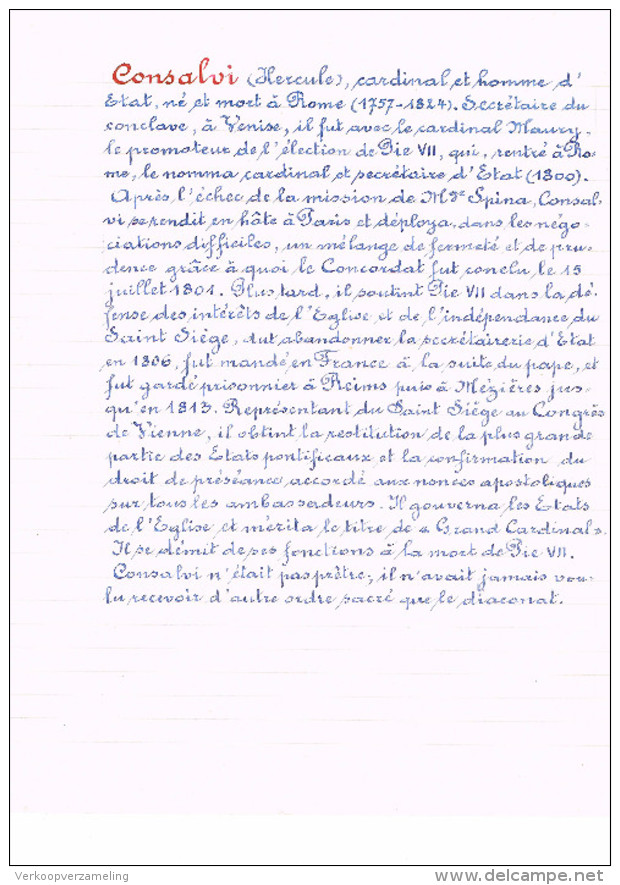 Consalvi (Hercule), cardinal et homme d'
Etat, né et mort à Rome (1757-1824). Secrétaire du
conclave, à Venise, il fut avec le cardinal Maury,
le promoteur de l'élection de Pie VII, qui, rentré à Ro-
me, le nomma cardinal et secrétaire d'Etat (1800).
Après l'échec de la mission de Mgr Spina, Consal-
vi se rendit en hâte à Paris et déploya, dans les négo-
ciations difficiles, un mélange de fermeté et de pru-
dence grâce à quoi le Concordat fut conclu le 15
juillet 1801. Plus tard, il soutint Pie VII dans la dé-
fense des intérêts de l'Eglise et de l'indépendance du
Saint Siège, dut abandonner la secrétairerie d'Etat
en 1806, fut mandé en France à la suite du pape, et
fut gardé prisonnier à Reims puis à Mézières jus-
qu'en 1813. Représentant du Saint Siège au Congrès
de Vienne, il obtint la restitution de la plus grande
partie des Etats pontificaux et la confirmation du
droit de préséance accordé aux nonces apostoliques
sur tous les ambassadeurs. Il gouverna les Etats
de l'Eglise et mérita le titre de « Grand Cardinal ».
Il se démit de ses fonctions à la mort de Pie VII.
Consalvi n'était pas prêtre; il n'avait jamais vou-
lu recevoir d'autre ordre sacré que le diaconat.
Verkoopverzameling
delcampe.net